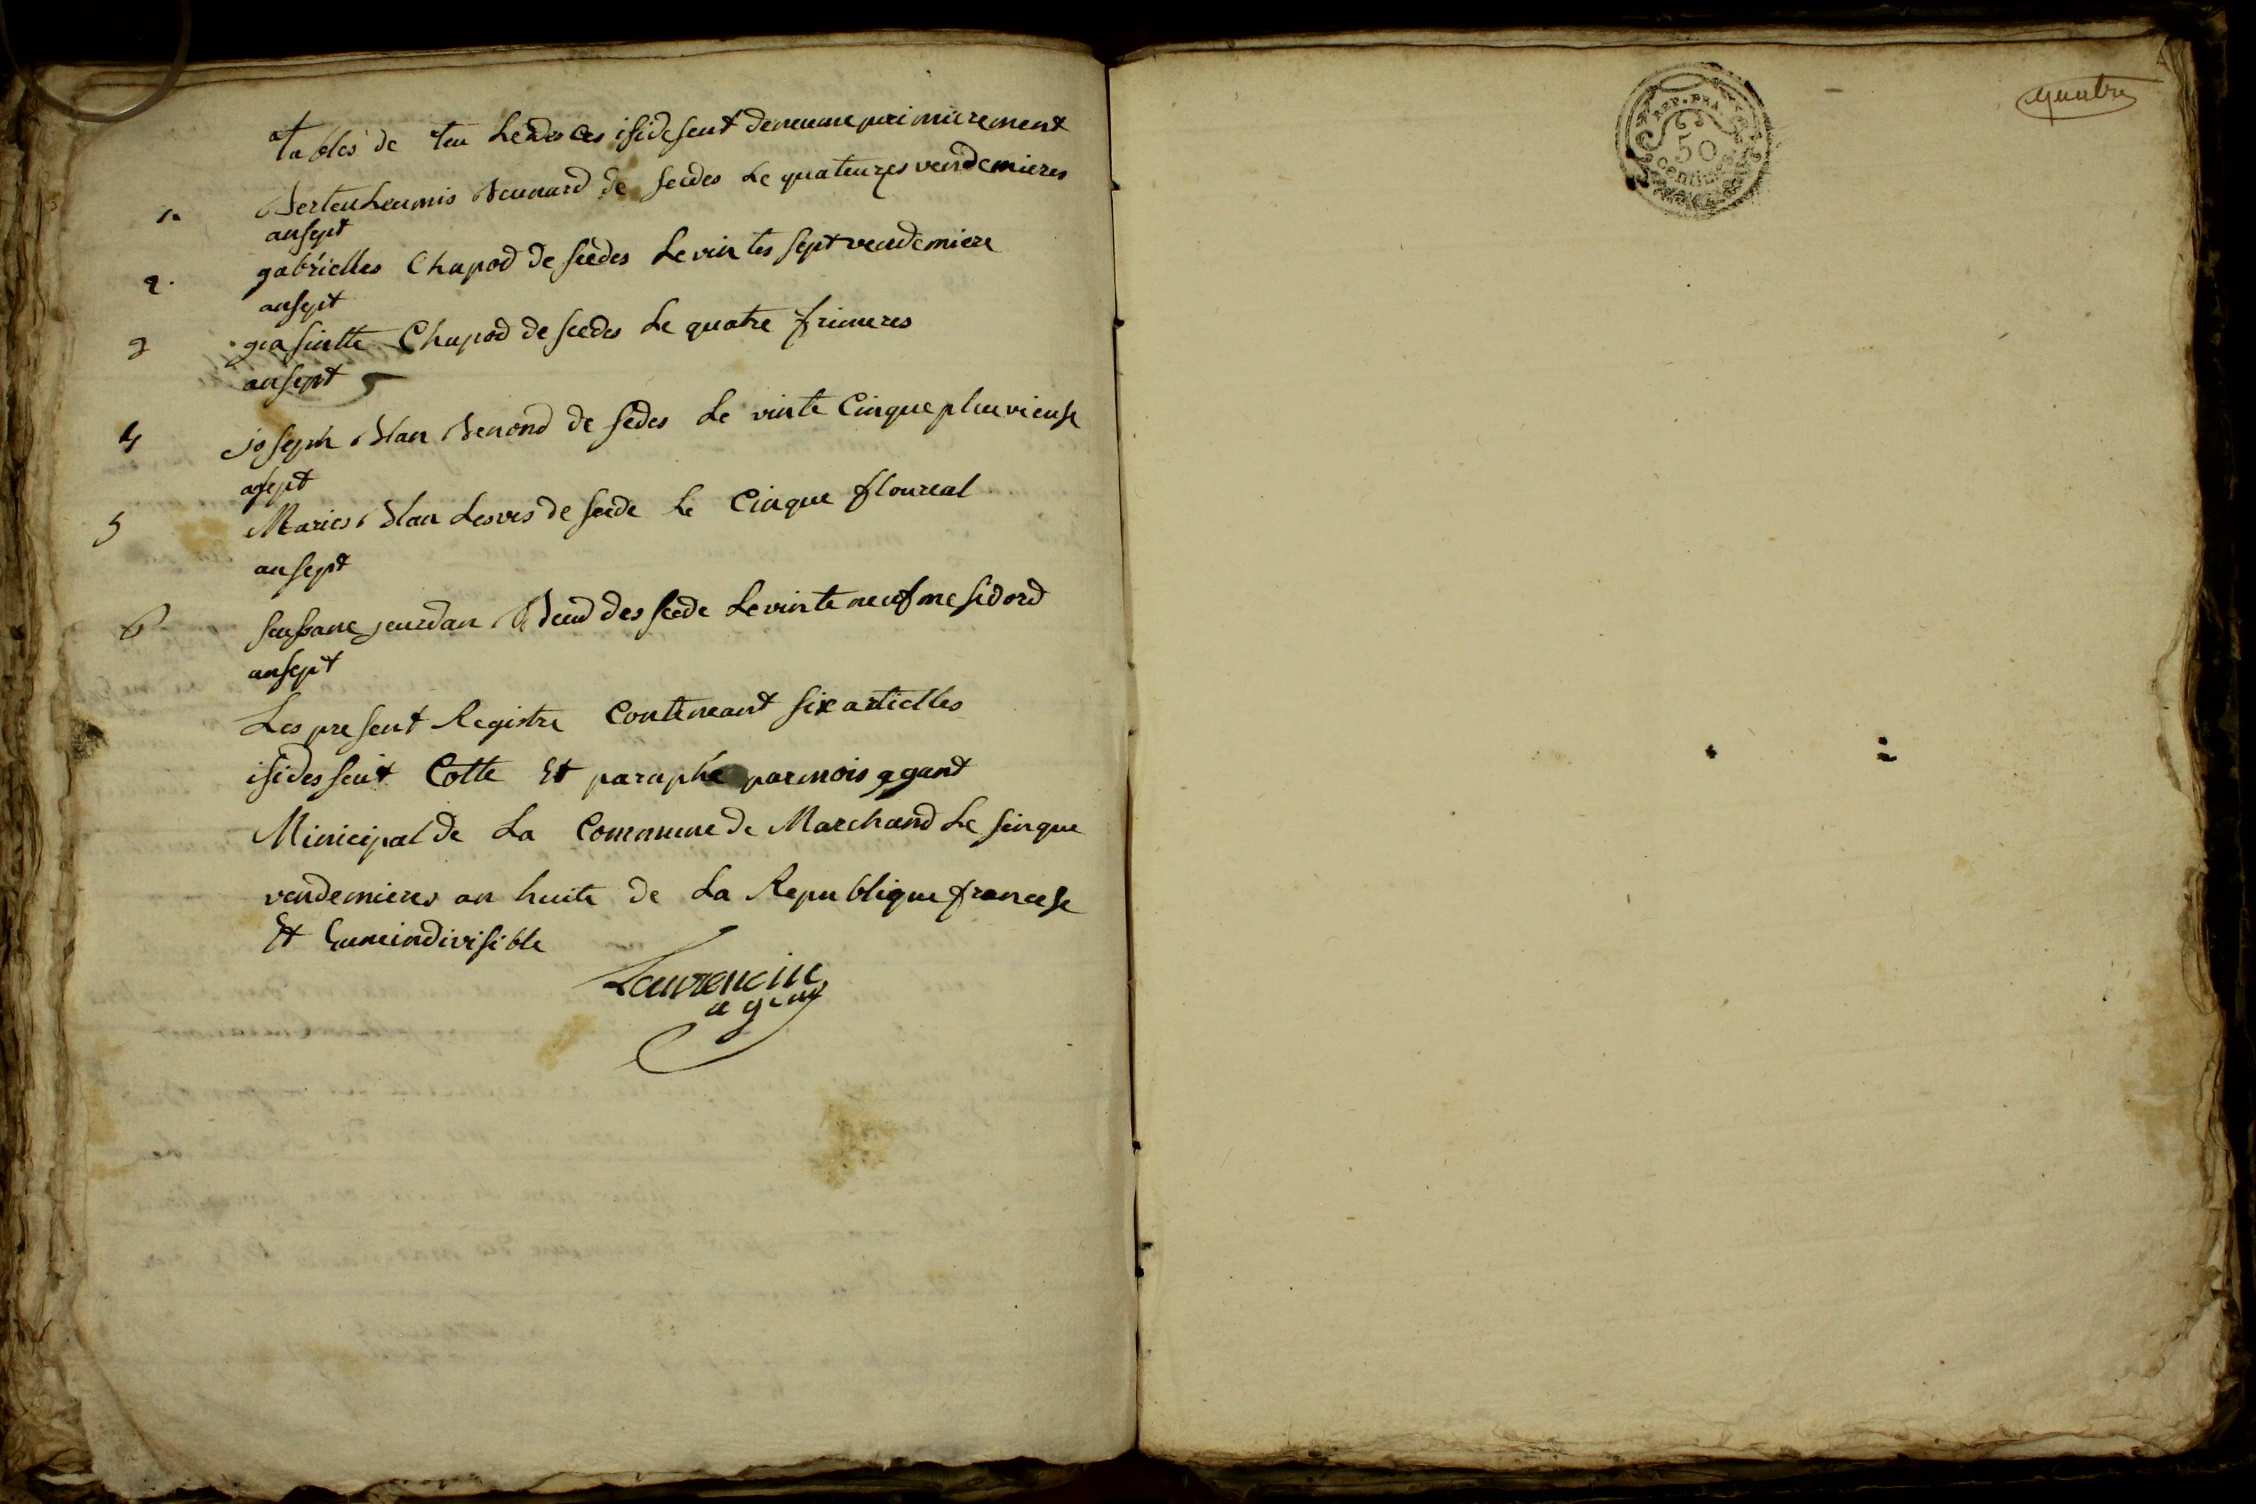 tables de teu Les des Ces iside seut deneume primierement
1. Berteuleumis Beunard de seedes Le quateuzes vendemieres
ansept
2. gabrielles Chapod de seedes Le vin tes sept vendemiere
ansept
3 giasintte Chapod de seedes Le quatre frimeres
ansept
4 joseph Blan Benond de sedes Le vinte Cinque pluvieuse
asept
5 Maries Blan Lesves de seede Le Cinque floureal
ansept
6 seusane jeurdan des seede Le vinte neuf mesidord
ansept
Les present Registre Conteneant six artielles
isides seut Cotte Et paraphé par mois agant
Minicipal de La Commune de Marchand Le sinque
vendemieres an huite de La Republique francese
Et Euneindivisible
Leurencin
agent
REP. FRA.
50
Centimes
quatre